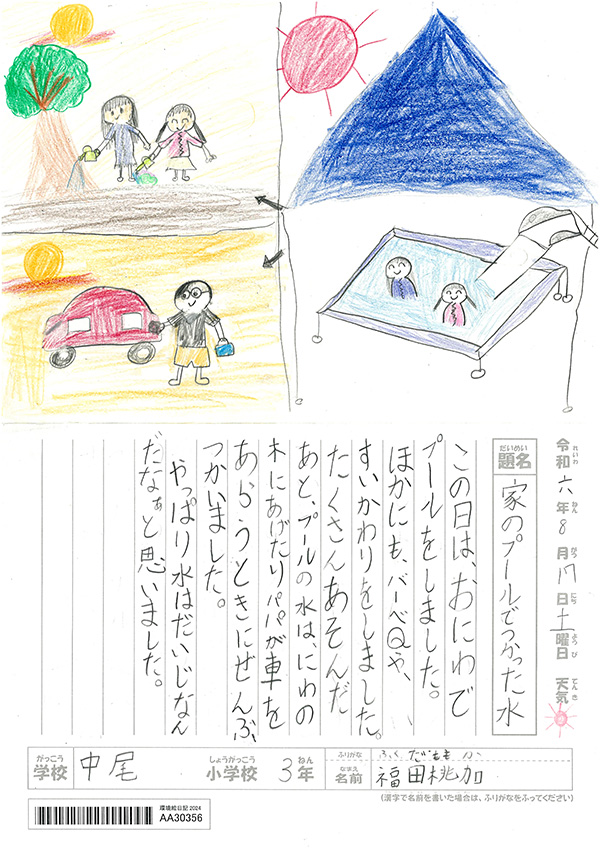 令和六年8月17日土曜日 天気
れいわ ねん がつ にち ようび てんき
だいめい
題名 家のプールでつかった水
この日は、おにわで
プールをしました。
ほかにも、バーベQや、
すいかわりをしました。
たくさんあそんだ
あと、プールの水は、にわの
木にあげたりパパが車を
あらうときにぜんぶ
つかいました。
やっぱり水はだいじなん
だなぁと思いました。
がっこう しょうがっこう ねん ふりがな ふくだももか
学校 中尾 小学校 3年 なまえ 名前 福田桃加
(漢字で名前を書いた場合は、ふりがなをふってください)
環境絵日記2024
AA30356